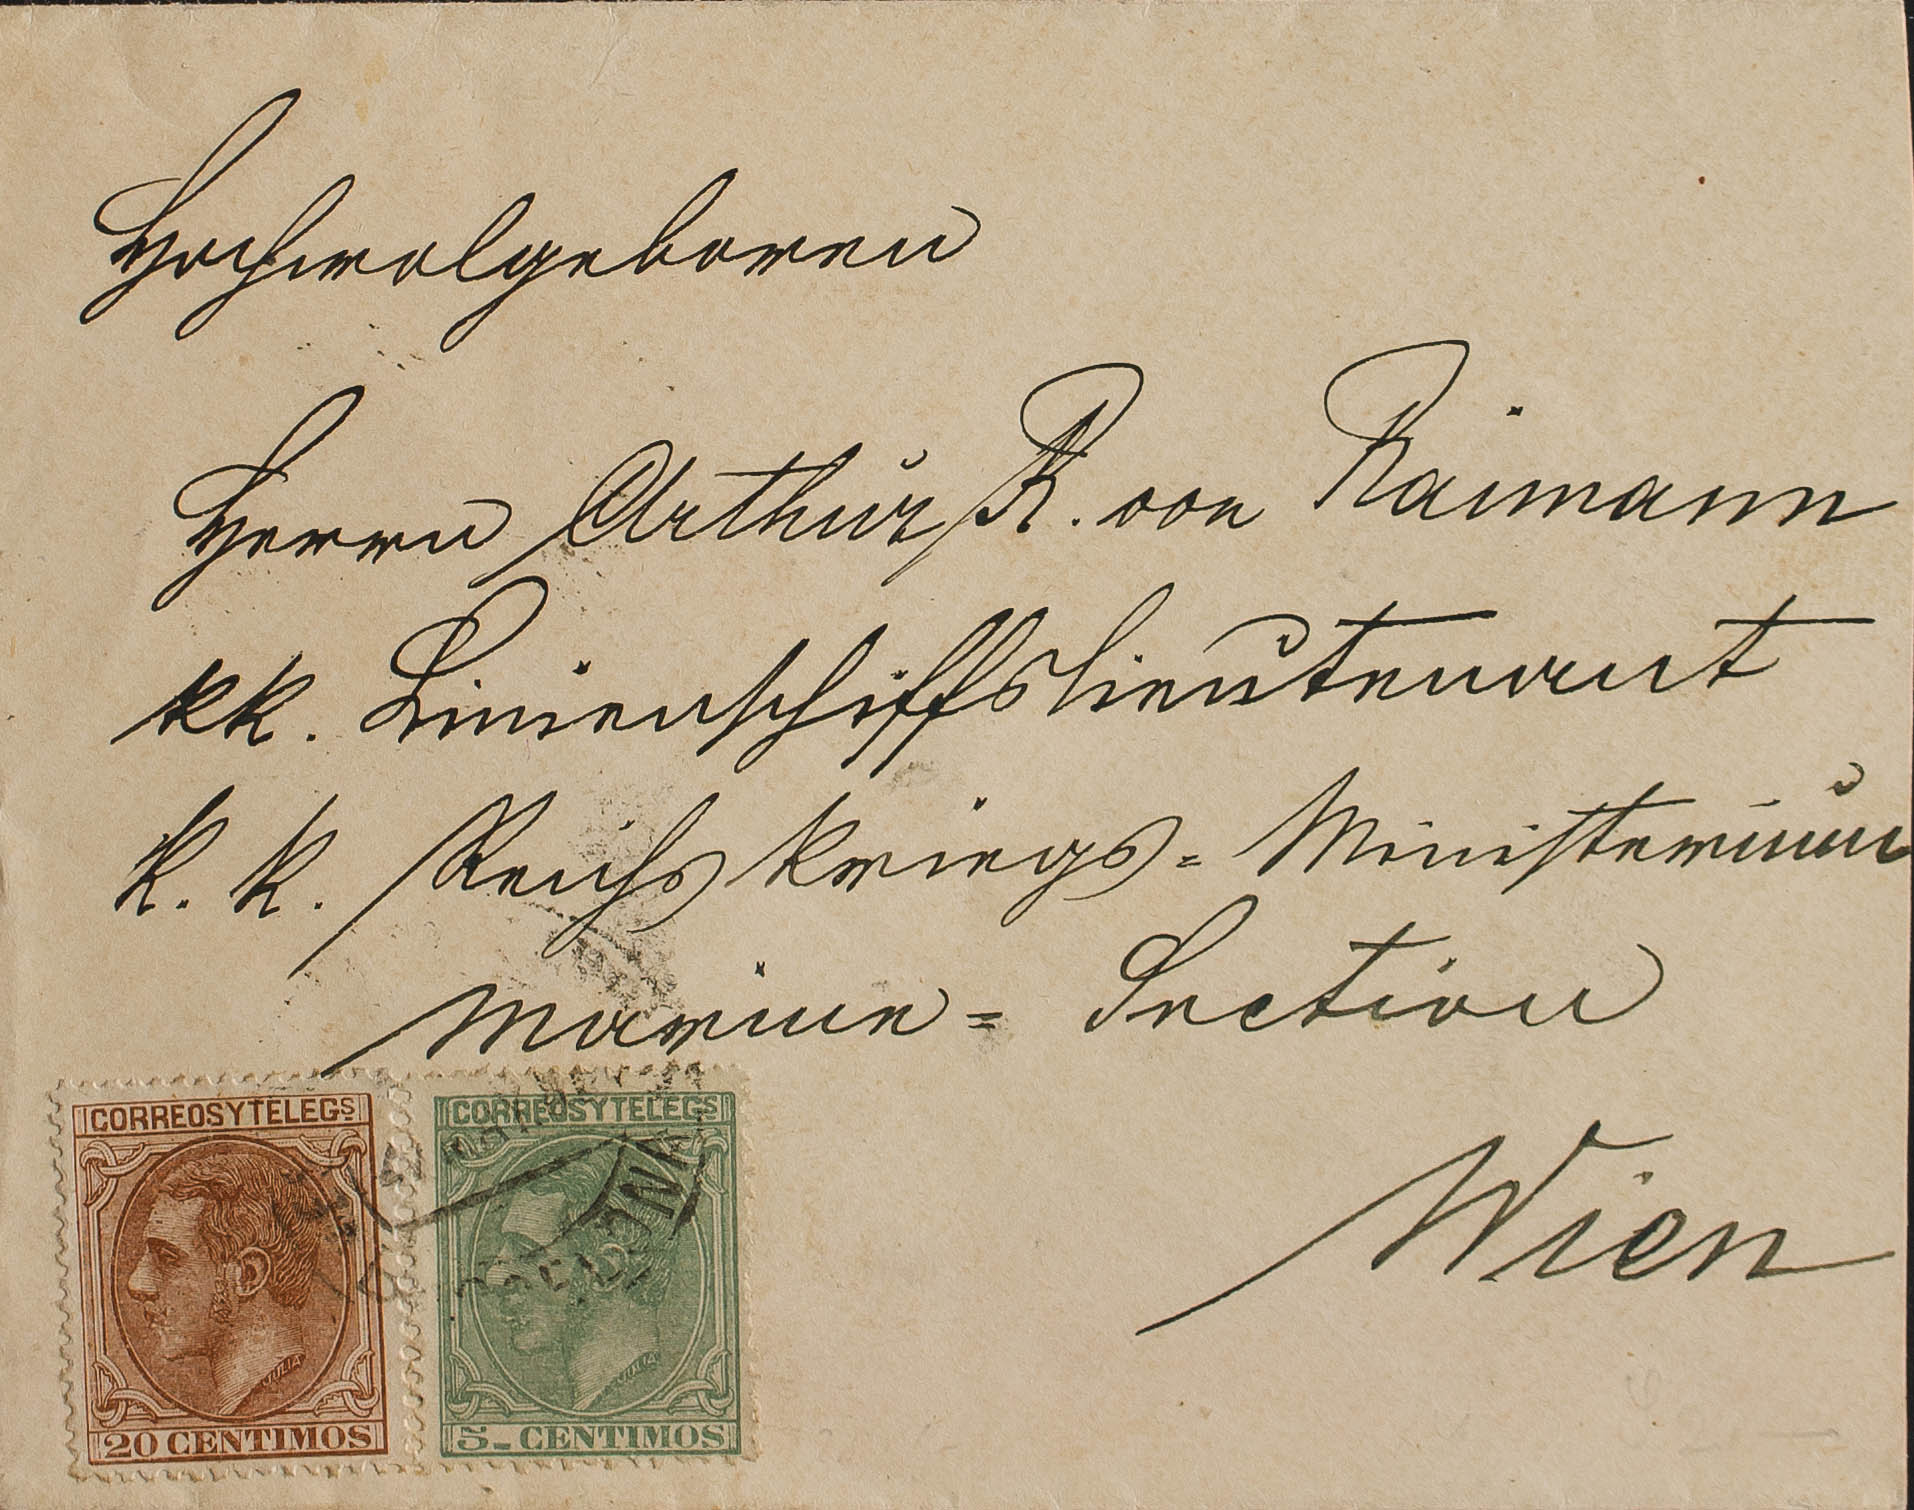 Hochwolgeboren
Herrn Arthur R. von Raimann
kk. Linienschiffslieutenant
k. k. Reichskriegs=Ministerium
Marine=Section
Wien
CORREOS Y TELEGS
20 CENTIMOS
JULIA
CORREOS Y TELEGS
5 CENTIMOS
JULIA